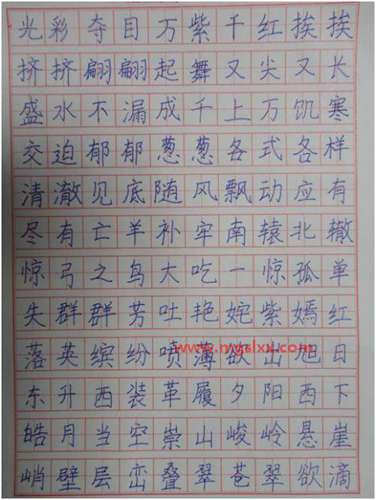 光彩夺目万紫千红挨挨
挤挤翩翩起舞又尖又长
盛水不漏成千上万饥寒
交迫郁郁葱葱各式各样
清澈见底随风飘动应有
尽有亡羊补牢南辕北辙
惊弓之鸟大吃一惊孤单
失群群芳吐艳姹紫嫣红
落英缤纷喷薄欲出旭日
www.mgslxx.com
东升西装革履夕阳西下
皓月当空崇山峻岭悬崖
峭壁层峦叠翠苍翠欲滴